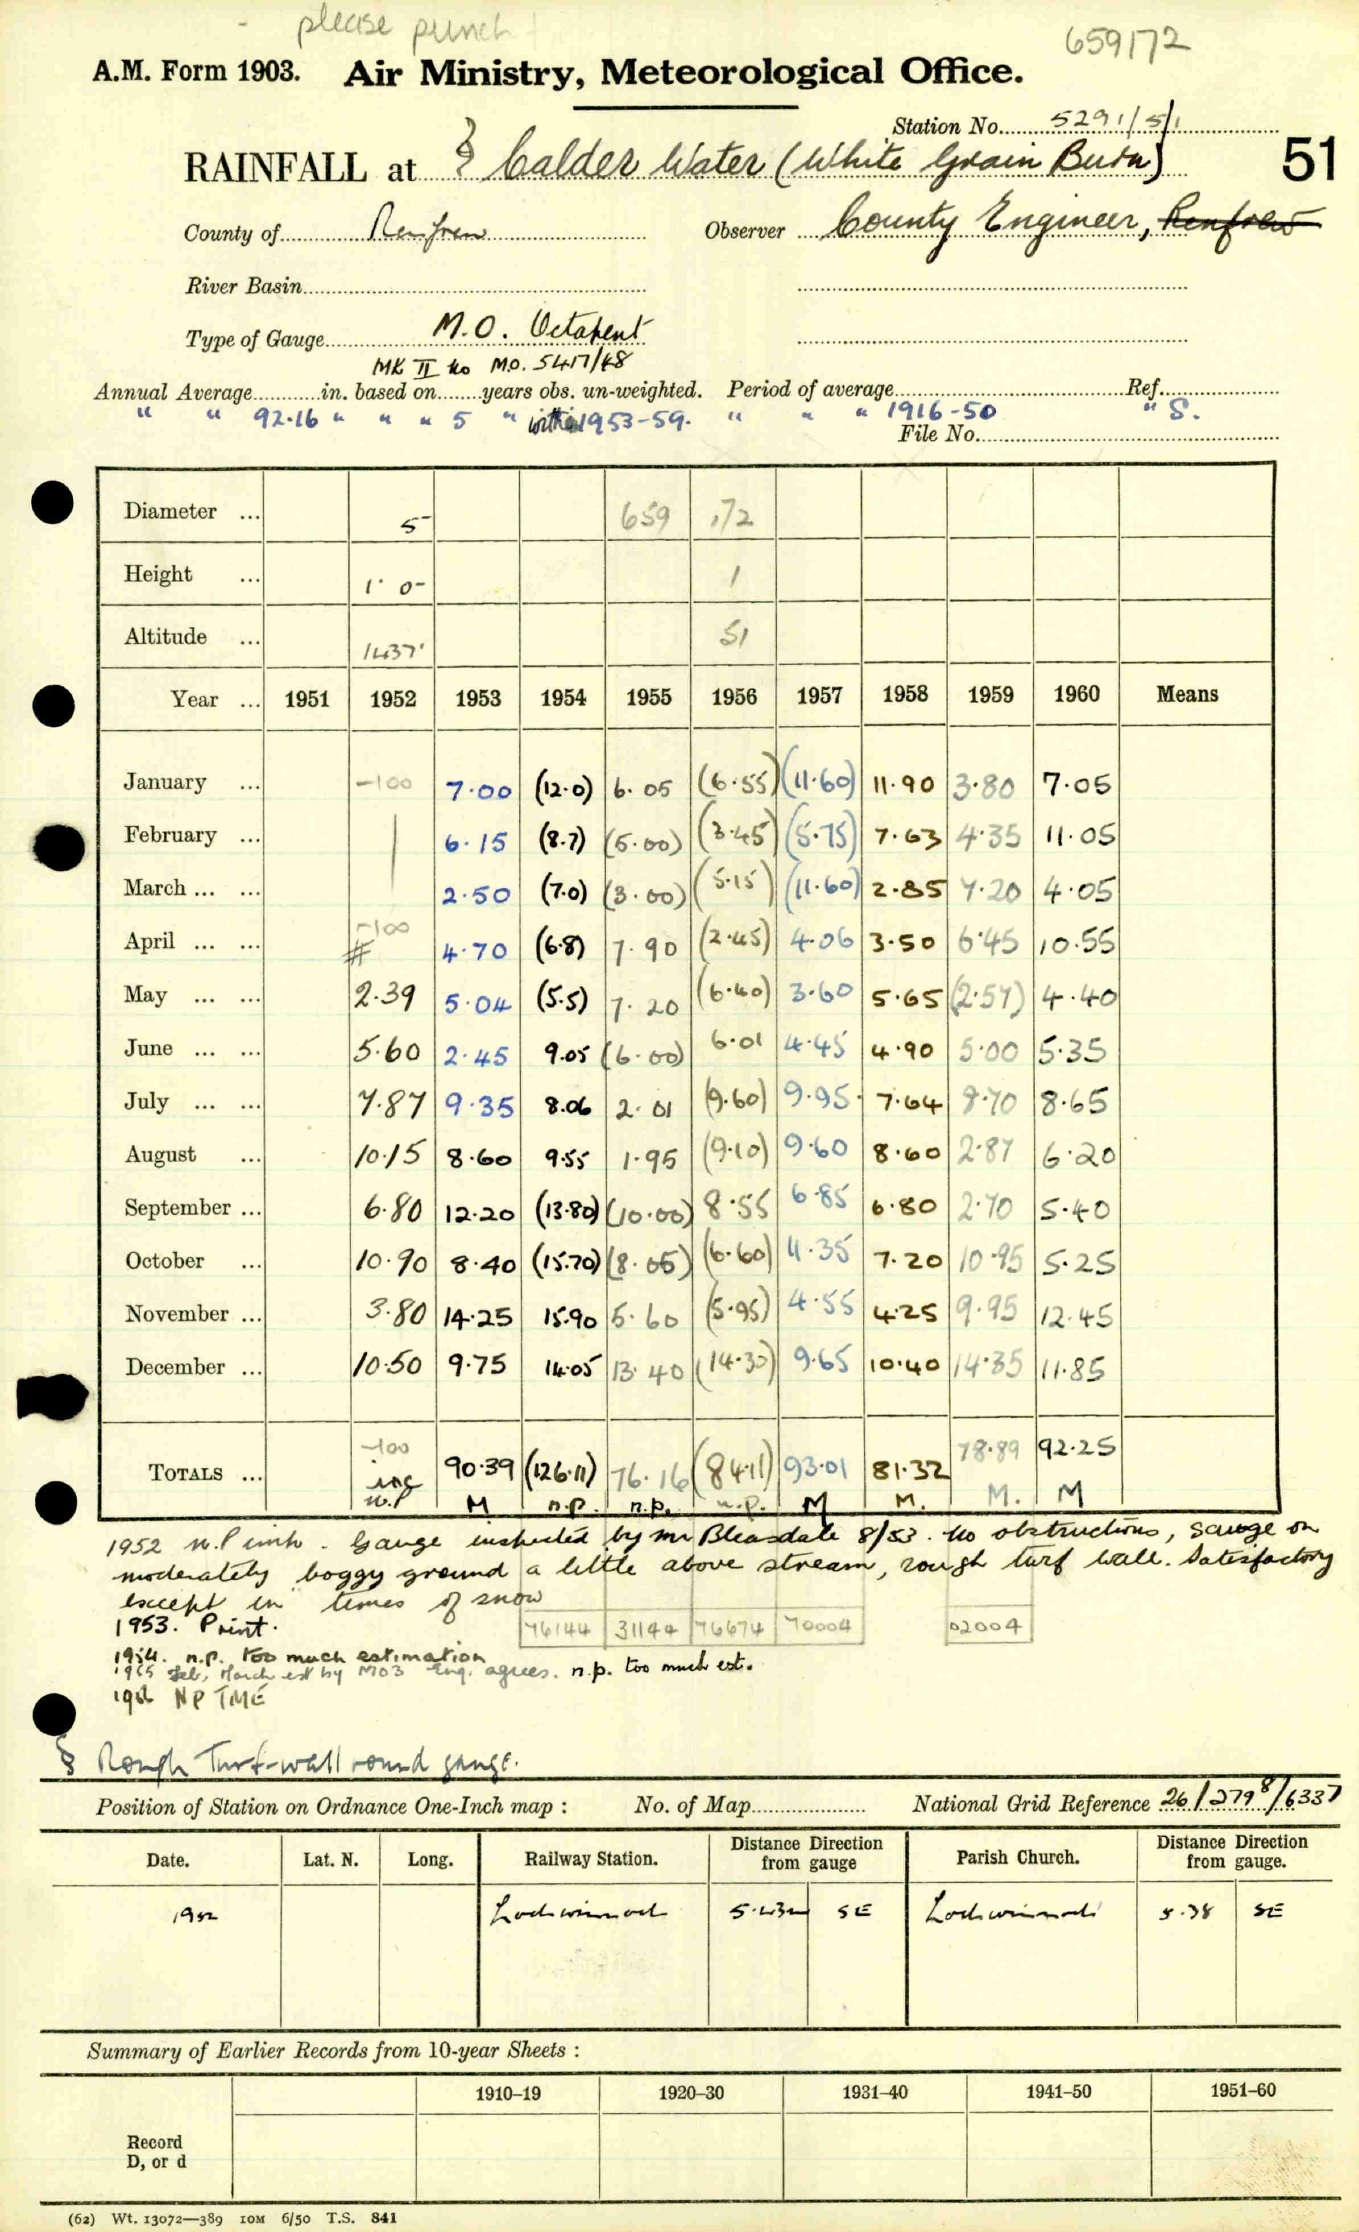 please punch
659172
A.M. Form 1903. Air Ministry, Meteorological Office.
Station No. 5291/51
RAINFALL at § Calder Water (White Grain Burn) 51
County of Renfrew Observer County Engineer, Renfrew
River Basin
Type of Gauge M.O. Octapent
MK II No M.O. 5417/48
Annual Average in. based on years obs. un-weighted. Period of average Ref.
" " 92.16 " " " 5 " within 1953-59. " " " 1916-50 " S.
File No.
Diameter ... 5 659 172
Height ... 1' 0" 1
Altitude ... 1437' 51
Year ... 1951 1952 1953 1954 1955 1956 1957 1958 1959 1960 Means
January ... -100 7.00 (12.0) 6.05 (6.55) (11.60) 11.90 3.80 7.05
February ... 6.15 (8.7) (5.00) (3.45) (5.75) 7.63 4.35 11.05
March ... ... 2.50 (7.0) (3.00) (5.15) (11.60) 2.85 7.20 4.05
April ... ... -100 # 4.70 (6.8) 7.90 (2.45) 4.06 3.50 6.45 10.55
May ... ... 2.39 5.04 (5.5) 7.20 (6.40) 3.60 5.65 (2.57) 4.40
June ... ... 5.60 2.45 9.05 (6.00) 6.01 4.45 4.90 5.00 5.35
July ... ... 7.87 9.35 8.06 2.01 (9.60) 9.95 7.64 8.70 8.65
August ... 10.15 8.60 9.55 1.95 (9.10) 9.60 8.60 2.87 6.20
September ... 6.80 12.20 (13.80) (10.00) 8.55 6.85 6.80 2.70 5.40
October ... 10.90 8.40 (15.70) (8.05) (6.60) 11.35 7.20 10.95 5.25
November ... 3.80 14.25 15.90 5.60 (5.95) 4.55 4.25 9.95 12.45
December ... 10.50 9.75 14.05 13.40 (14.30) 9.65 10.40 14.35 11.85
TOTALS ... -100 inc 90.39 (126.11) 76.16 (84.11) 93.01 81.32 78.89 92.25
n.P M n.p. n.p. n.p. M M. M. M
1952 n.P inch. Gauge inspected by Mr Bleasdale 8/53. No obstructions, gauge on
moderately boggy ground a little above stream, rough turf wall. Satisfactory
except in times of snow
1953. Print. 76144 31144 76674 70004 02004
1954. n.p. too much estimation
1955 Feb, March est by MO3 Eng. agrees. n.p. too much est.
1956 NP TME
§ Rough Turf-wall round gauge.
Position of Station on Ordnance One-Inch map : No. of Map National Grid Reference 26/279⁸/6337
Date. Lat. N. Long. Railway Station. Distance Direction from gauge Parish Church. Distance Direction from gauge.
1952 Lochwinnoch SE Lochwinnoch 5.38 SE
Summary of Earlier Records from 10-year Sheets :
1910–19 1920–30 1931–40 1941–50 1951–60
Record
D, or d
(62) Wt. 13072—389 10M 6/50 T.S. 841